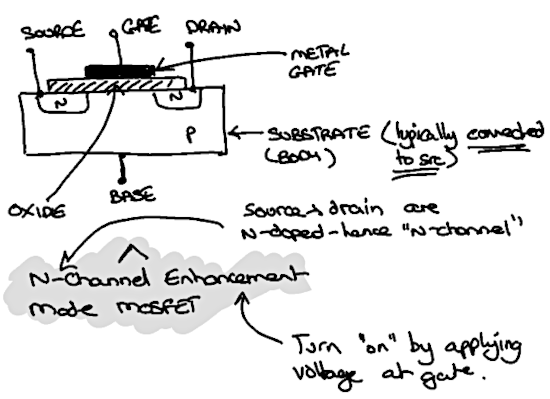 SOURCE GATE DRAIN
METAL
GATE
N N
P
SUBSTRATE (typically connected
(BODY) to src)
BASE
OXIDE
Source & drain are
N-doped-hence "N-channel"
N-Channel Enhancement
Mode MOSFET
Turn "on" by applying
voltage at gate.